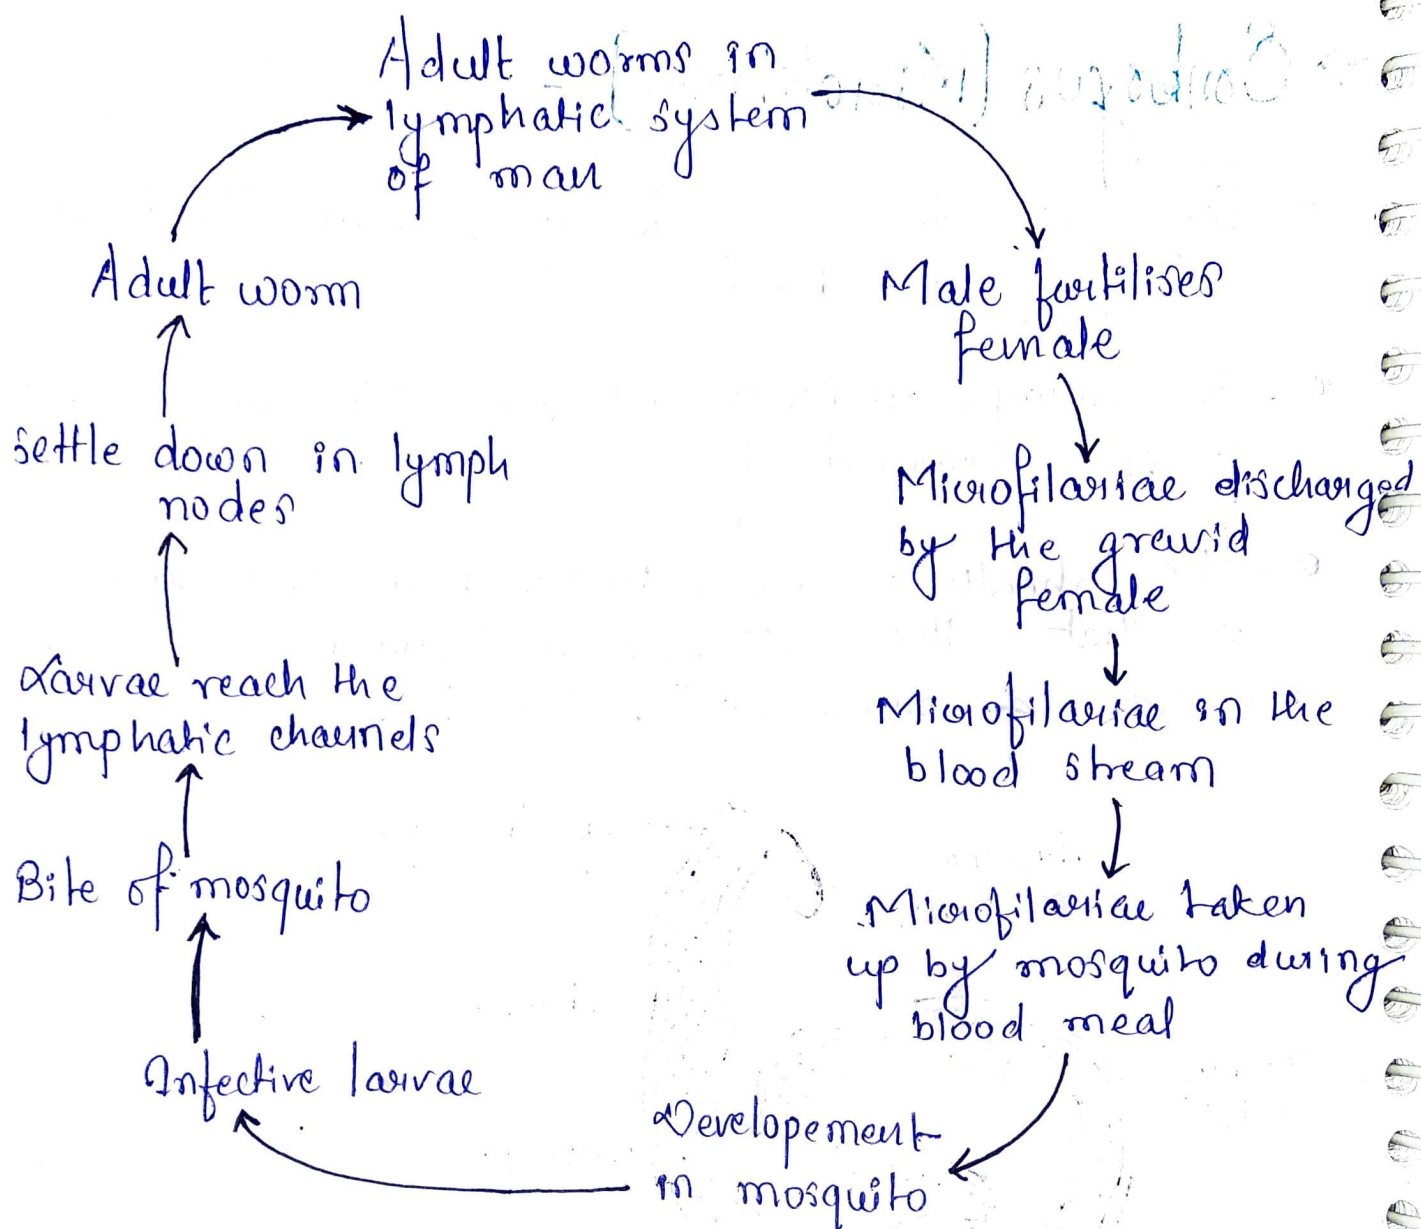 Adult worms in
lymphatic system
of man
Male fertilises
female
Microfilariae discharged
by the gravid
female
Microfilariae in the
blood stream
Microfilariae taken
up by mosquito during
blood meal
Developement
in mosquito
Infective larvae
Bite of mosquito
Larvae reach the
lymphatic channels
Settle down in lymph
nodes
Adult worm